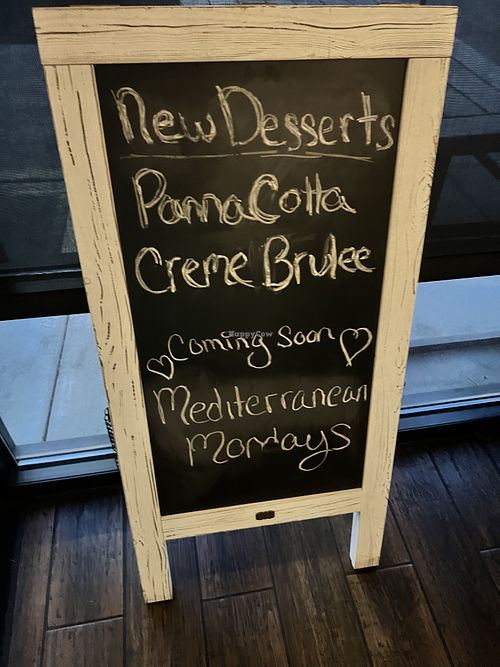 New Desserts
Panna Cotta
Creme Brulee
HappyCow
Coming Soon
Mediterranean
Mondays